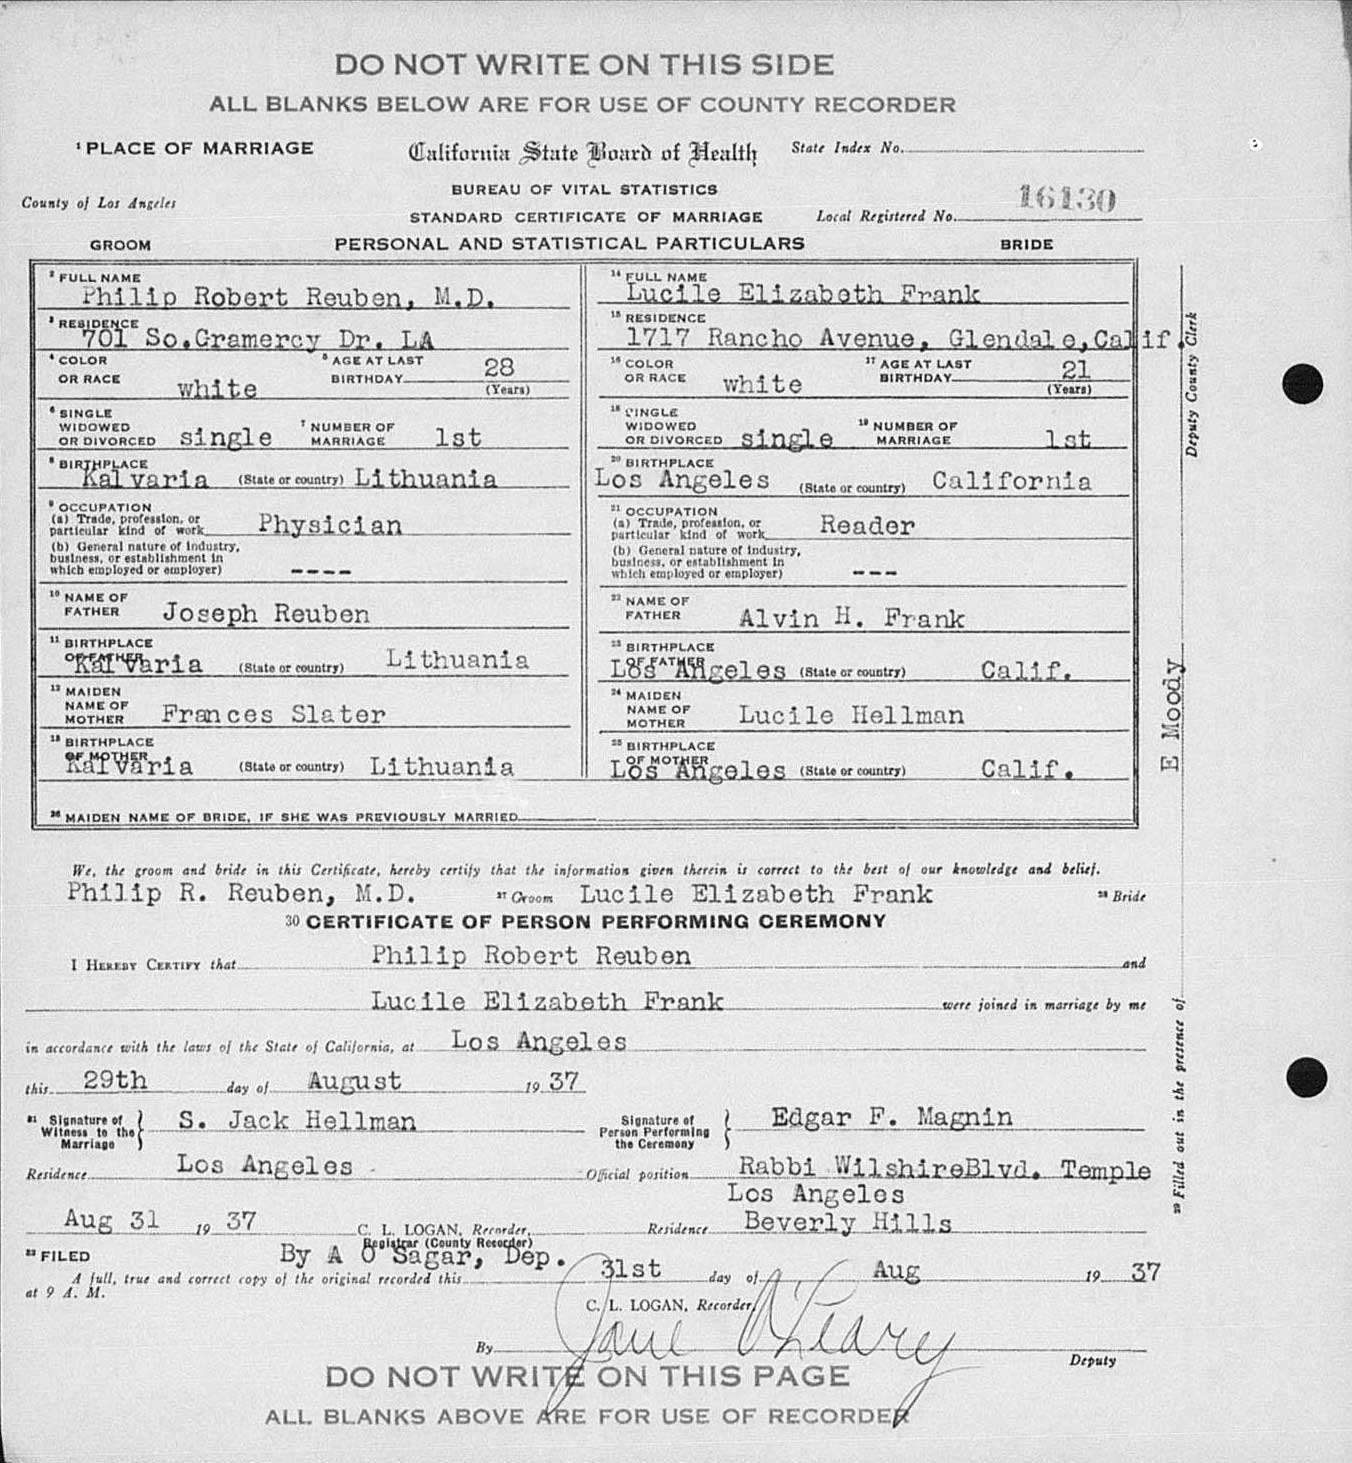 DO NOT WRITE ON THIS SIDE
ALL BLANKS BELOW ARE FOR USE OF COUNTY RECORDER
1 PLACE OF MARRIAGE California State Board of Health State Index No.
County of Los Angeles BUREAU OF VITAL STATISTICS 16130
STANDARD CERTIFICATE OF MARRIAGE Local Registered No.
GROOM PERSONAL AND STATISTICAL PARTICULARS BRIDE
2 FULL NAME
Philip Robert Reuben, M.D.
3 RESIDENCE
701 So.Gramercy Dr. LA
4 COLOR OR RACE white 5 AGE AT LAST BIRTHDAY 28 (Years)
6 SINGLE WIDOWED OR DIVORCED single 7 NUMBER OF MARRIAGE 1st
8 BIRTHPLACE
Kalvaria (State or country) Lithuania
9 OCCUPATION
(a) Trade, profession, or
particular kind of work Physician
(b) General nature of industry,
business, or establishment in
which employed or employer) ----
10 NAME OF FATHER Joseph Reuben
11 BIRTHPLACE OF FATHER
Kalvaria (State or country) Lithuania
12 MAIDEN NAME OF MOTHER Frances Slater
13 BIRTHPLACE OF MOTHER
Kalvaria (State or country) Lithuania
14 FULL NAME
Lucile Elizabeth Frank
15 RESIDENCE
1717 Rancho Avenue, Glendale,Calif.
16 COLOR OR RACE white 17 AGE AT LAST BIRTHDAY 21 (Years)
18 SINGLE WIDOWED OR DIVORCED single 19 NUMBER OF MARRIAGE 1st
20 BIRTHPLACE
Los Angeles (State or country) California
21 OCCUPATION
(a) Trade, profession, or
particular kind of work Reader
(b) General nature of industry,
business, or establishment in
which employed or employer) ---
22 NAME OF FATHER Alvin H. Frank
23 BIRTHPLACE OF FATHER
Los Angeles (State or country) Calif.
24 MAIDEN NAME OF MOTHER Lucile Hellman
25 BIRTHPLACE OF MOTHER
Los Angeles (State or country) Calif.
26 MAIDEN NAME OF BRIDE, IF SHE WAS PREVIOUSLY MARRIED
We, the groom and bride in this Certificate, hereby certify that the information given therein is correct to the best of our knowledge and belief.
Philip R. Reuben, M.D. 27 Groom Lucile Elizabeth Frank 28 Bride
30 CERTIFICATE OF PERSON PERFORMING CEREMONY
I HEREBY CERTIFY that Philip Robert Reuben and
Lucile Elizabeth Frank were joined in marriage by me
in accordance with the laws of the State of California, at Los Angeles
this 29th day of August 19 37
31 Signature of Witness to the Marriage } S. Jack Hellman Signature of Person Performing the Ceremony } Edgar F. Magnin
Residence Los Angeles Official position Rabbi WilshireBlvd. Temple
Los Angeles
Aug 31 19 37 C. L. LOGAN, Recorder, Residence Beverly Hills
Registrar (County Recorder)
FILED By A O Sagar, Dep.
A full, true and correct copy of the original recorded this 31st day of Aug 19 37
at 9 A. M.
C. L. LOGAN, Recorder,
By Jane O'Leary Deputy
DO NOT WRITE ON THIS PAGE
ALL BLANKS ABOVE ARE FOR USE OF RECORDER
29 Filled out in the presence of E Moody Deputy County Clerk